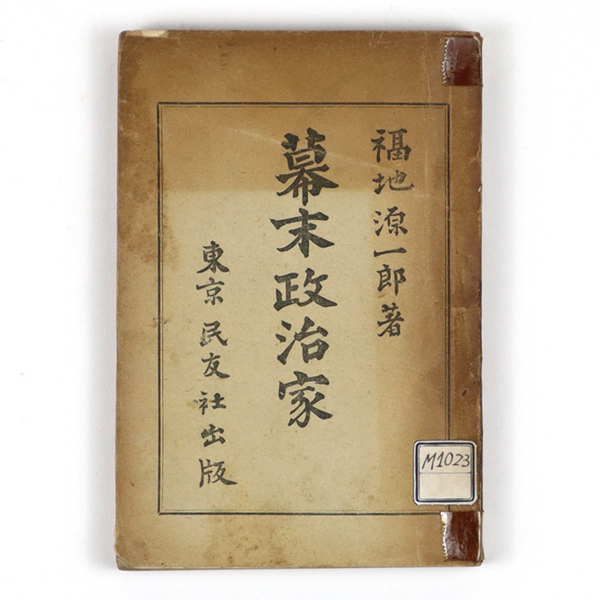 福地源一郎著
幕末政治家
東京 民友社出版
M1023